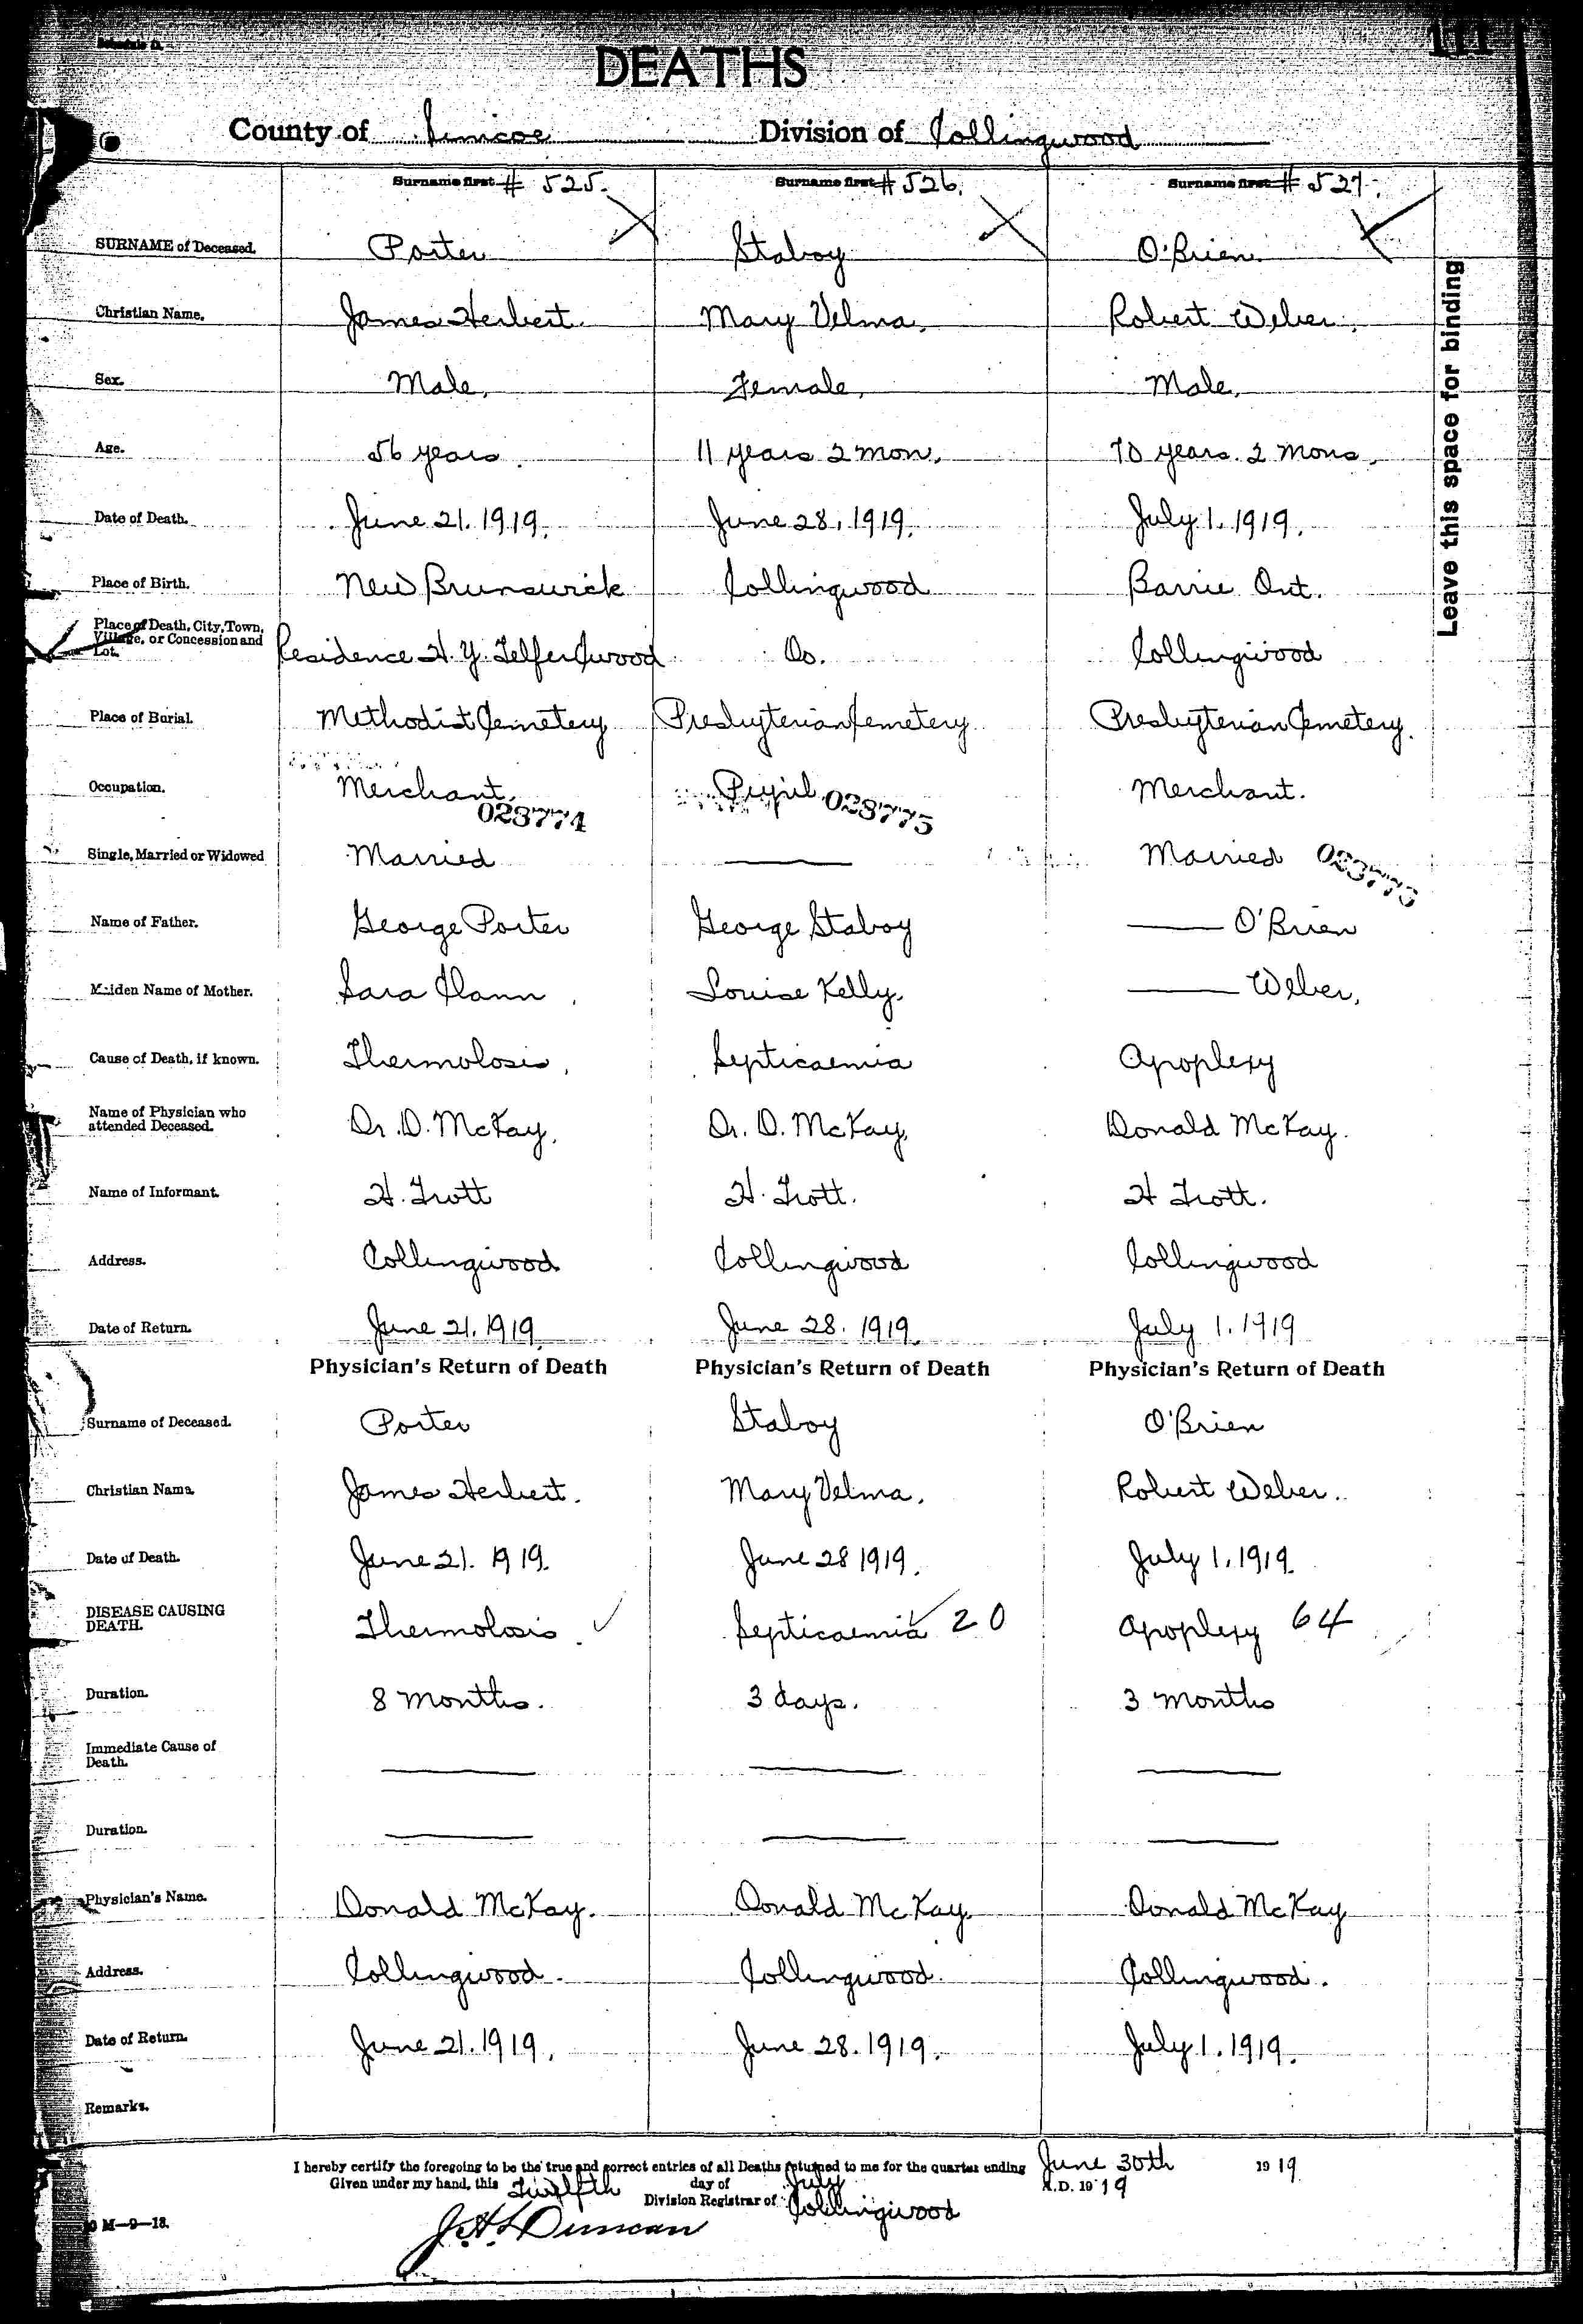 Schedule D.
111
DEATHS
County of Simcoe Division of Collingwood
Surname first # 525. Surname first # 526. Surname first # 527.
SURNAME of Deceased. Porter Staboy O'Brien.
Christian Name. James Herbert. Mary Velma. Robert Weber.
Sex. Male. Female. Male.
Age. 56 years. 11 years 2 mon. 70 years. 2 mons.
Date of Death. June 21. 1919. June 28, 1919. July 1. 1919.
Place of Birth. New Brunswick Collingwood Barrie Ont.
Place of Death, City, Town,
Village, or Concession and
Lot. Residence H. Y. Telfer C'wood Do. Collingwood
Place of Burial. Methodist Cemetery Presbyterian Cemetery Presbyterian Cemetery.
Occupation. Merchant. Pupil Merchant.
023774 023775
Single, Married or Widowed Married Married
Name of Father. George Porter George Staboy O'Brien
Maiden Name of Mother. Sara Louise Kelly. Weber,
Cause of Death, if known. Thermolosis, Septicaemia Apoplexy
Name of Physician who
attended Deceased. Dr. D. McKay. Dr. D. McKay, Donald McKay.
Name of Informant. H. Trott H. Trott. H Trott.
Address. Collingwood Collingwood Collingwood
Date of Return. June 21. 1919 June 28. 1919. July 1. 1919
Physician's Return of Death Physician's Return of Death Physician's Return of Death
Surname of Deceased. Porter Staboy O'Brien
Christian Name. James Herbert. Mary Velma. Robert Weber.
Date of Death. June 21. 1919. June 28 1919. July 1, 1919.
DISEASE CAUSING
DEATH. Thermolosis. Septicaemia 20 Apoplexy 64
Duration. 8 months. 3 days. 3 months
Immediate Cause of
Death.
Duration.
Physician's Name. Donald McKay. Donald McKay. Donald McKay
Address. Collingwood. Collingwood. Collingwood.
Date of Return. June 21. 1919. June 28. 1919. July 1. 1919.
Remarks.
Leave this space for binding
I hereby certify the foregoing to be the true and correct entries of all Deaths returned to me for the quarter ending June 30th 1919
Given under my hand, this Twelfth day of July A.D. 1919
Division Registrar of Collingwood
J. H. Duncan
M—9—18.